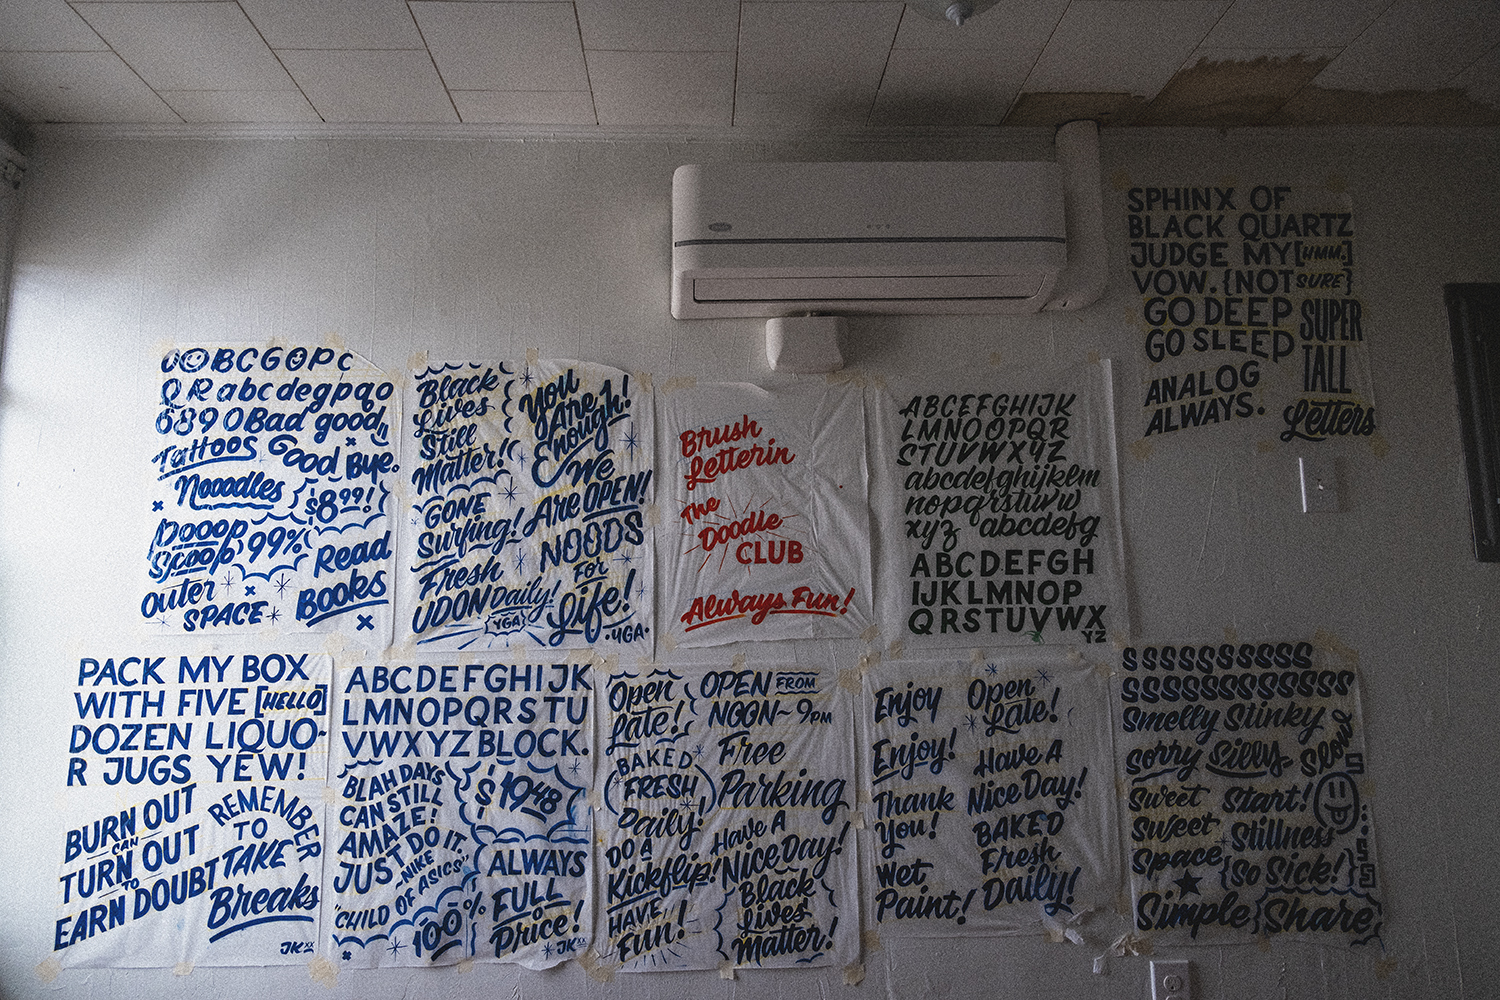 SPHINX OF
BLACK QUARTZ
JUDGE MY [HMM.]
VOW. {NOT SURE}
GO DEEP
GO SLEEP
SUPER
TALL
Letters
ANALOG
ALWAYS.
BCGOPC
QRabcdegpqo
6890Bad good,,
Tattoos Good Bye.
Nooodles $8.99!
Dooop
Scoop 99% Read
Outer
SPACE Books
Black
Lives
Still
Matter!
GONE
Surfing!
Fresh
UDON Daily!
YGA
You
Are
Enough!
We
Are OPEN!
NOODS
For
Life!
.YGA.
Brush
Letterin
The
Doodle
CLUB
Always Fun!
ABCEFGHIJK
LMNOOPQR
STUVWXYZ
abcdefghijklem
nopqrstuvw
xyz abcdefg
ABCDEFGH
IJKLMNOP
QRSTUVWX
YZ
PACK MY BOX
WITH FIVE [HELLO]
DOZEN LIQUO-
R JUGS YEW!
BURN OUT
CAN
TURN OUT
TO
EARN DOUBT
REMEMBER
TO
TAKE
Breaks
JK XX
ABCDEFGHIJK
LMNOPQRSTU
VWXYZ BLOCK.
BLAH DAYS
CAN STILL
AMAZE!
JUST DO IT.
~NIKE
"CHILD OF ASICS"
100%
$19.48
ALWAYS
FULL
Price!
JK XX
Open
Late!
BAKED
FRESH
Daily!
DO A
Kickflip!
HAVE
Fun!
OPEN FROM
NOON~9PM
Free
Parking
Have A
Nice Day!
Black
Lives
Matter!
Enjoy
Enjoy!
Thank
You!
Wet
Paint!
Open
Late!
Have A
Nice Day!
BAKED
Fresh
Daily!
SSSSSSSSSS
SSSSSSSSSSSS
Smelly Stinky
Sorry Silly Slow
Sweet Start!
Sweet Stillness
Space {So Sick!}
Simple}{Share